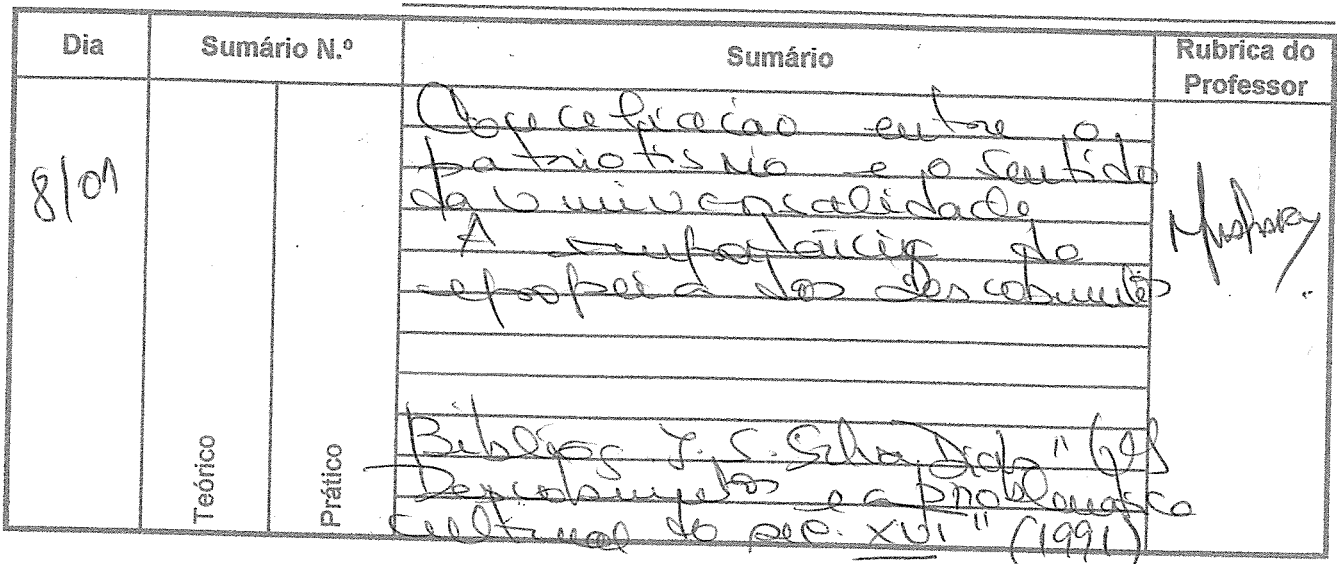 Dia
Sumário N.º
Sumário
Rubrica do
Professor
8/01
Teórico
Prático
entre o
patriotismo e o sentido
da Universalidade
A importância da
epopeia dos descobrimentos
Bibliog J. S. Silva Dias "Os
Descobrimentos e a problemática
cultural do séc. XVI" (1991)